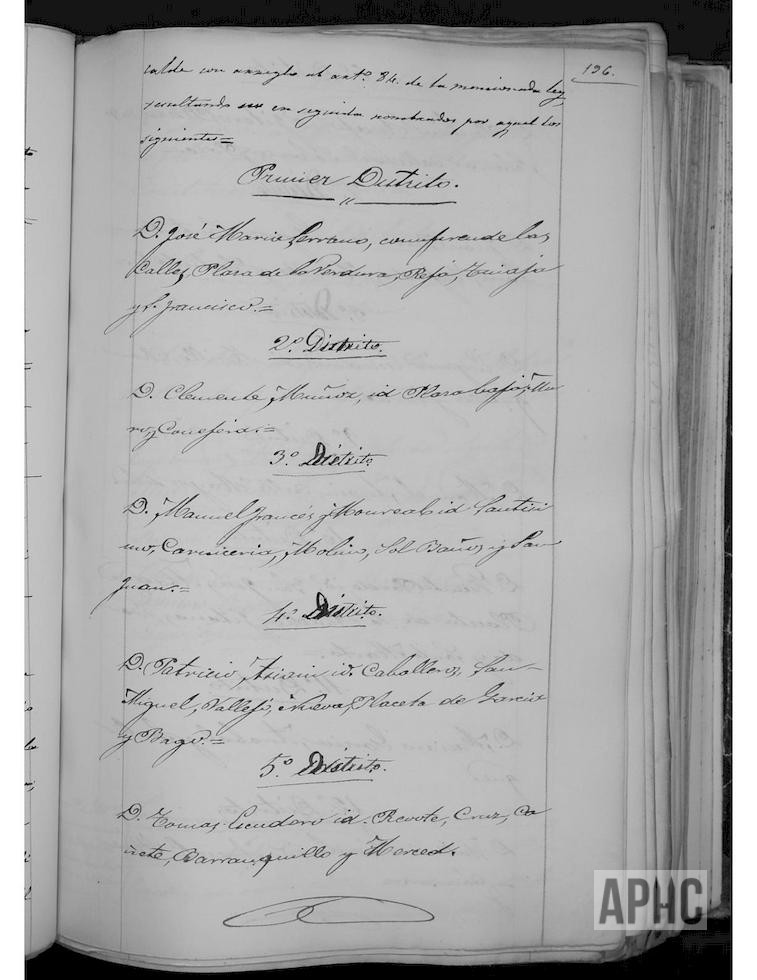 196.
calde con arreglo al artº. 84. de la mencionada ley
resultando en seguida nombrados por aquel los
siguientes=
Primer Distrito.
D. José Maria Serrano, comprende las
Calles, Plaza de la Verdura, Reja, Tinaja
y S. Francisco.=
2º. Distrito.
D. Clemente Muñoz, id Plaza baja, Mu
ro, y Conejera.=
3º. Distrito.
D. Manuel Francés y Monreal id Santisi
mo, Carniceria, Molino, Sol Baños y San
Juan.=
4º. Distrito.
D. Patricio id. Caballeros, San-
Miguel, Vallejo, Nueva, Placeta de Garcia
y Bago.=
5º. Distrito.
D. Tomas Escudero id. Rebote, Cruz, Ca
ñete, Barranquillo y Merced.
APHC